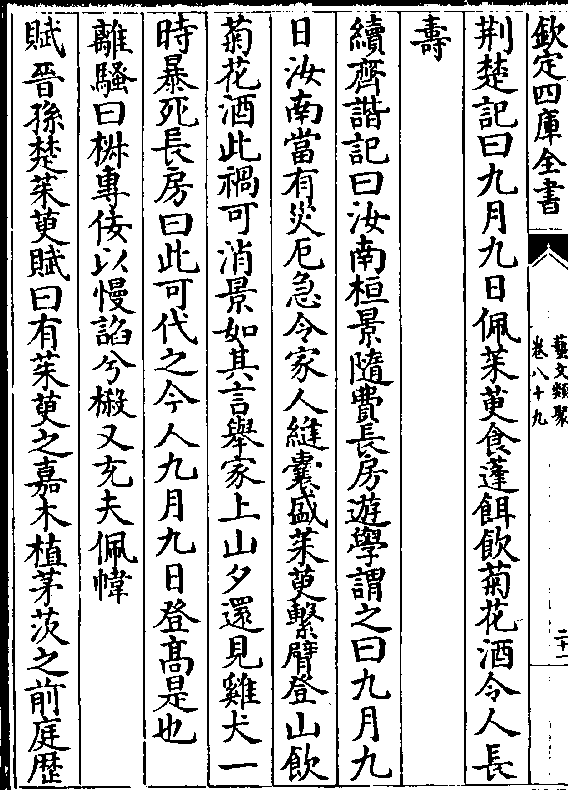 欽定四庫全書
藝文類聚
卷八十九
二十二
荆楚記曰九月九日佩茱萸食蓬餌飲菊花酒令人長
壽
續齊諧記曰汝南桓景隨費長房遊學謂之曰九月九
日汝南當有災厄急令家人縫囊盛茱萸繫臂登山飲
菊花酒此禍可消景如其言舉家上山夕還見雞犬一
時暴死長房曰此可代之今人九月九日登髙是也
離騷曰椒專佞以慢諂兮樧又充夫佩幃
賦晉孫楚茱萸賦曰有茱萸之嘉木植茅茨之前庭歴